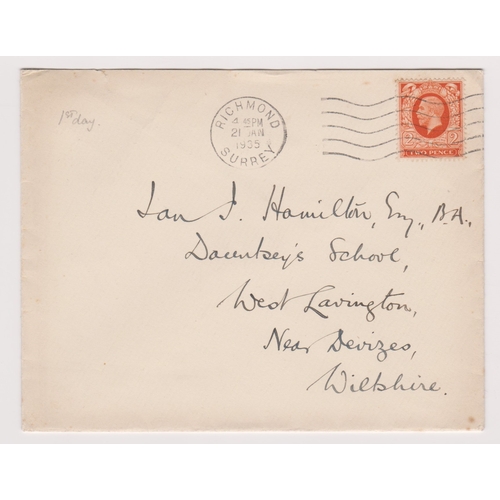 1st day.
RICHMOND
PM
21 JAN
1935
SURREY
TWO PENCE
Ian J. Hamilton, Esq., B.A.,
Dauntsey's School,
West Lavington,
Near Devizes,
Wiltshire.